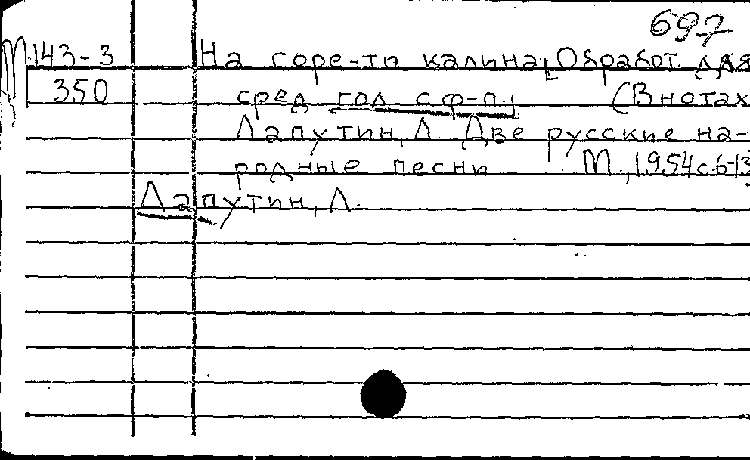 697
М 143-3 На горе-то калина, [Обработ. для
350 сред. гол. с ф-п.] (В нотах
Лапутин, Л. Две русские на-
родные песни М., 1954 с. 6-13
Лапутин, Л.